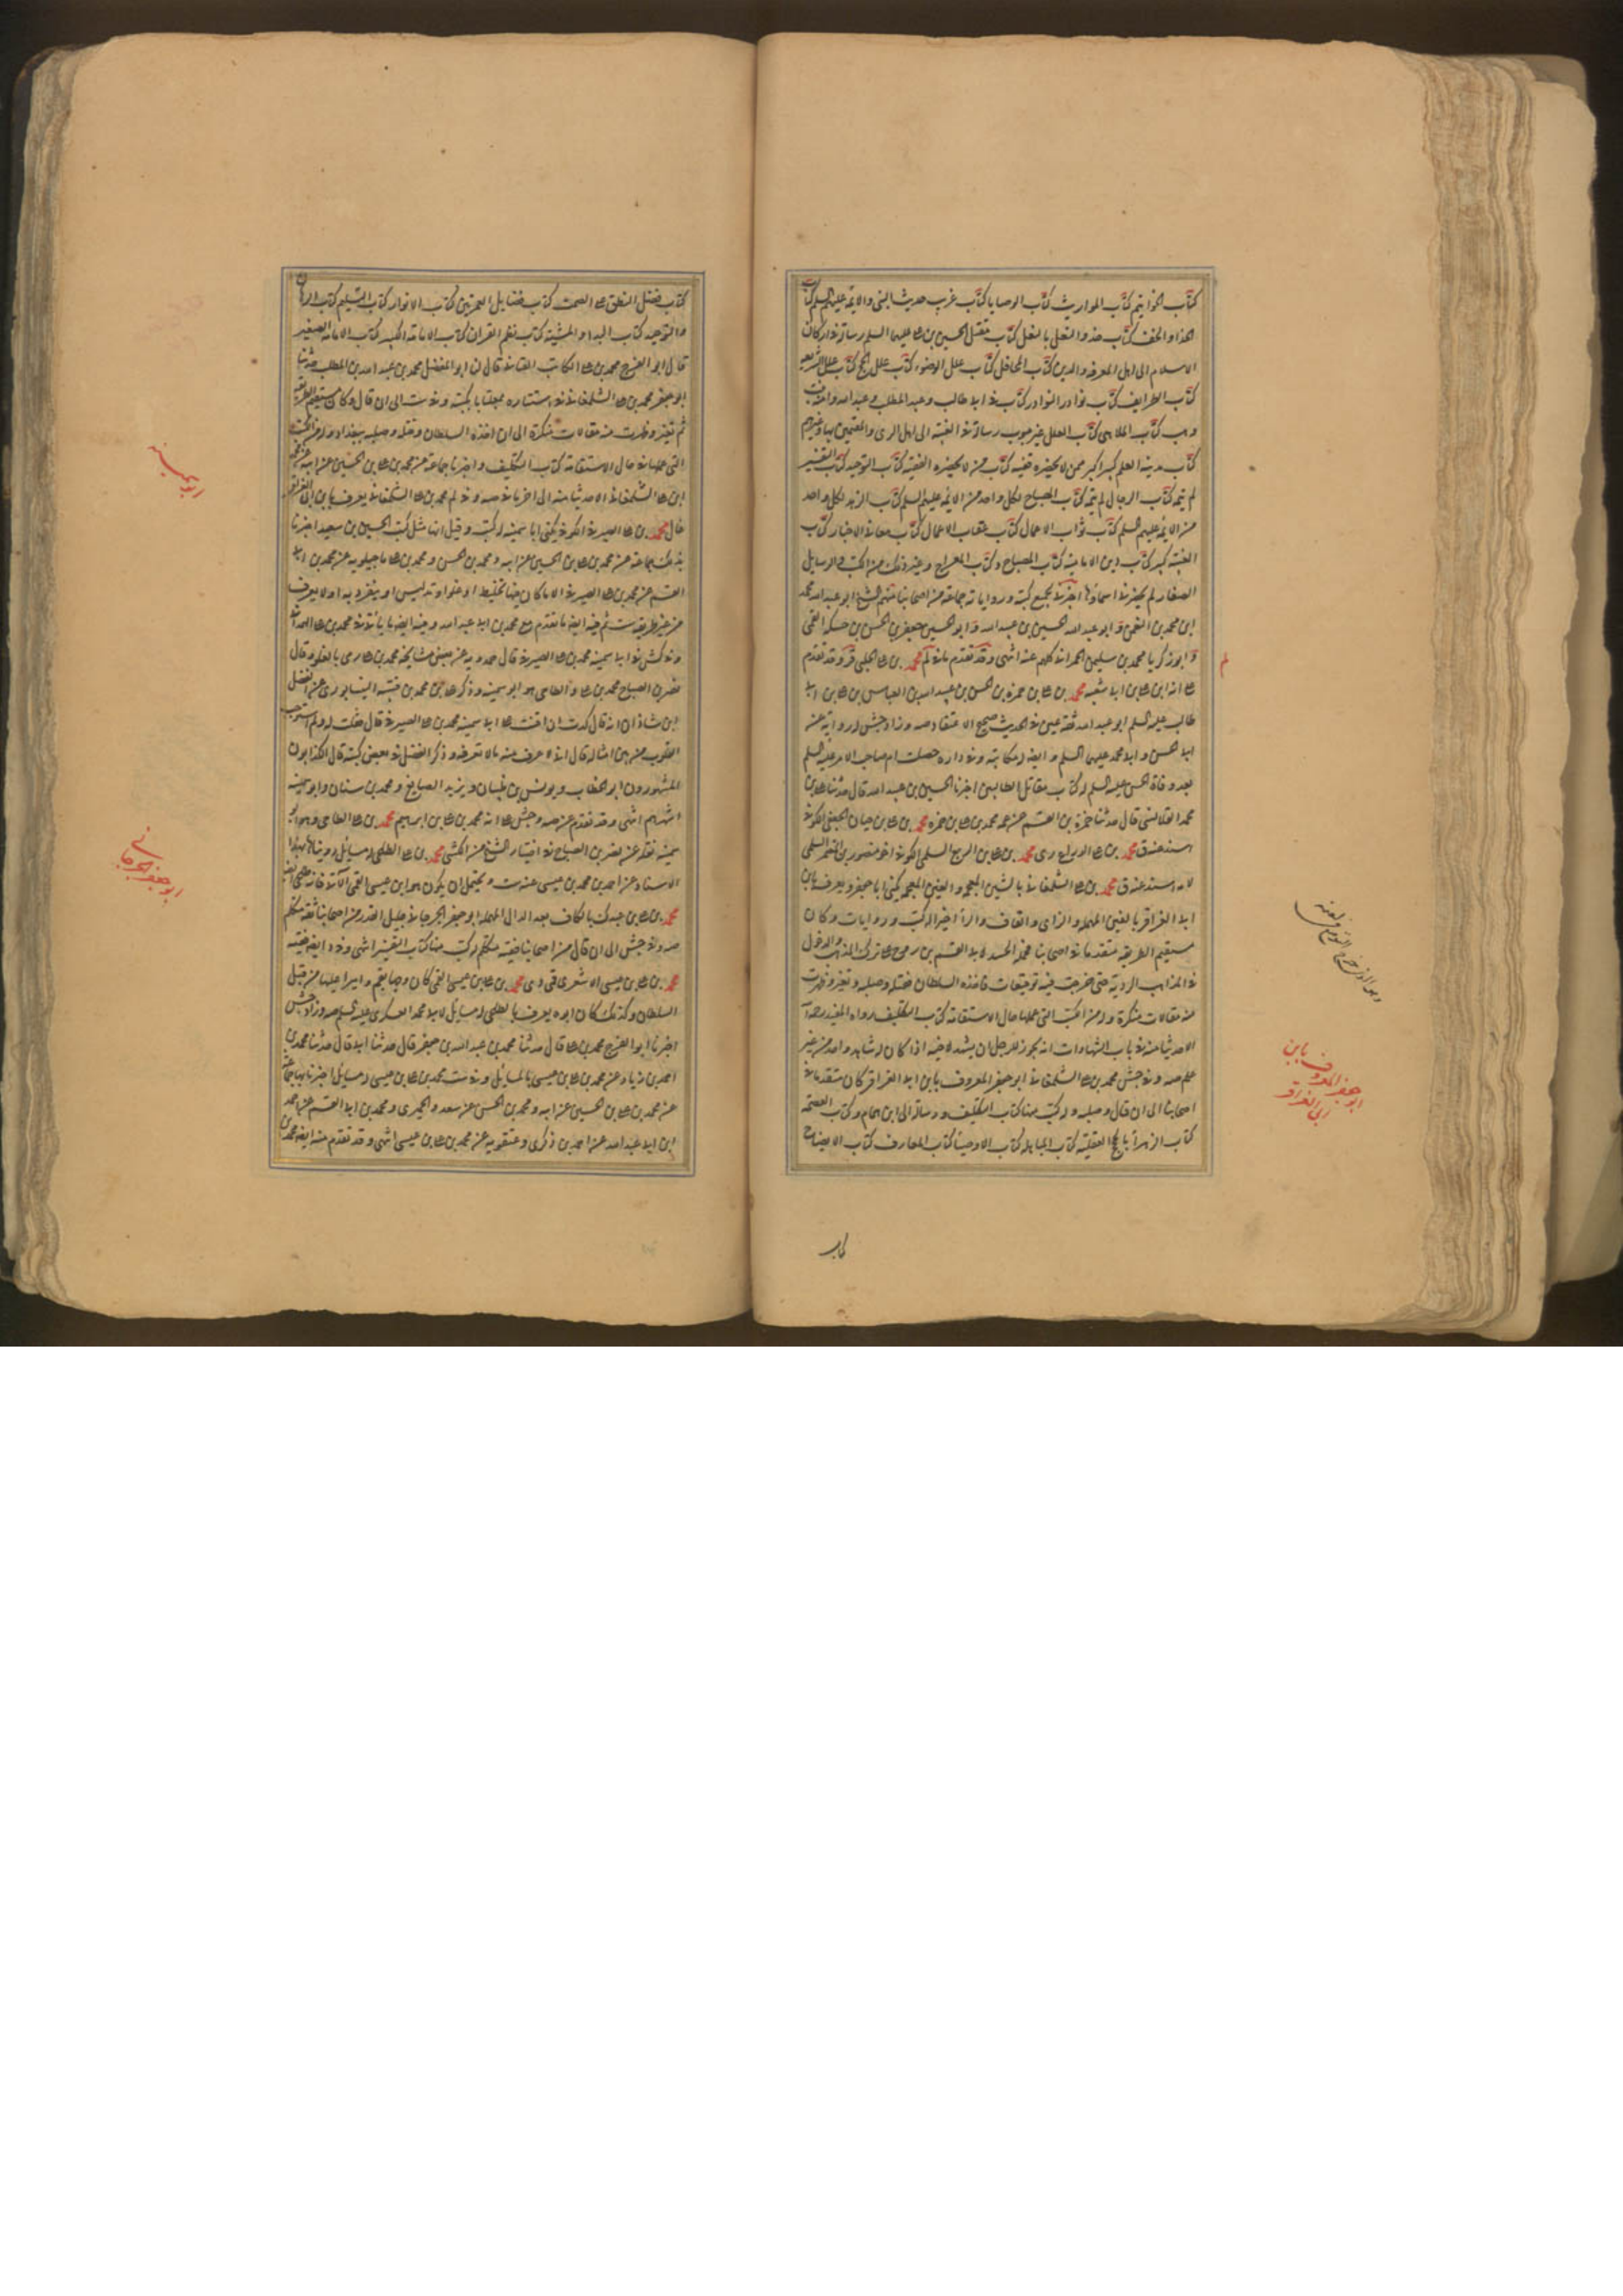 كتاب الخواتيم كتاب المواريث كتاب الوصايا كتاب غريب حديث النبي والائمة عليهم السلم كتاب
الحذاء والخف كتاب حذو النعل بالنعل كتاب مقتل الحسين بن علي عليهما السلم رسالة في اركان
الاسلام الى اهل المعرفة والدين كتاب المحافل كتاب علل الوضوء كتاب علل الحج كتاب علل الشريعة
كتاب الطرايف كتاب نوادر النوادر كتاب في ابي طالب وعبد المطلب وعبد الله وامنة بنت
وهب كتاب الملاهي كتاب العلل غير مبوب رسالة في الغيبة الى اهل الري والمقيمين بها وغيرهم
كتاب مدينة العلم كبير اكبر من من لا يحضره الفقيه كتاب من لا يحضره الفقيه كتاب التوحيد كتاب التفسير
لم يتمه كتاب الرجال لم يتمه كتاب المصباح لكل واحد من الائمة عليهم السلم كتاب الزهد لكل واحد
من الائمة عليهم السلم كتاب ثواب الاعمال كتاب عقاب الاعمال كتاب معاني الاخبار كتاب
الغيبة كبير كتاب دين الامامية كتاب المصباح وكتاب المعراج وغير ذلك من الكتب والرسايل
الصغار لم يحضرني اسماؤها اخبرنا بجميع كتبه ورواياته جماعة من اصحابنا منهم الشيخ ابو عبد الله محمد
ابن محمد بن النعمن وابو عبد الله الحسين بن عبيد الله وابو الحسين جعفر بن الحسن بن حسكه القمي
وابو زكريا محمد بن سليمن الحمراني كلهم عنه انتهى وقد تقدم ما في لم محمد بن علي الحلبي ق ر وقد تقدم
علي انه ابن علي بن ابي شعبه محمد بن علي بن حمزه بن الحسن بن عبيد الله بن العباس بن علي بن ابي
طالب عليه السلم ابو عبد الله ثقة عين في الحديث صحيح الاعتقاد صه وزاد جش له رواية عن
ابي الحسن وابي محمد عليهما السلم وايضا له مكاتبة وفي داره حصلت ام صاحب الامر عليه السلم
بعد وفاة الحسن عليه السلم له كتاب مقاتل الطالبيين اخبرنا الحسين بن عبيد الله قال حدثنا علي بن
محمد القلانسي قال حدثنا حمزه بن القسم عن عمه محمد بن علي بن حمزه محمد بن علي بن حيان الجعفي الكوفي
اسند عنه ق محمد بن علي محمد بن علي بن الربيع السلمي الكوفي اخو منصور بن المعتمر السلمي
لامه اسند عنه ق محمد بن علي الشلمغاني بالشين المعجمة والغين المعجمة يكنى ابا جعفر ويعرف بابن
ابي العزاقر بالعين المهملة والزاي والقاف والراء اخيرا له كتب وروايات وكان
مستقيم الطريقة متقدما في اصحابنا فحمله الحسد لابي القسم بن روح على ترك المذهب والدخول
في المذاهب الردية حتى خرجت فيه توقيعات فاخذه السلطان فقتله وصلبه وتغير وظهرت
عنه مقالات منكرة وله من الكتب التي عملها حال الاستقامة كتاب التكليف رواه المفيد رحمه الله
الا حديثا منه في باب الشهادات انه يجوز للرجل ان يشهد لاخيه اذا كان له شاهد واحد من غير
علم صه وفي جش محمد بن علي الشلمغاني ابو جعفر المعروف بابن ابي العزاقر كان متقدما في
اصحابنا الى ان قال وصلبه وله كتب منها كتاب التكليف ورسالة الى ابن همام وكتاب العصمة
كتاب الزاهر بالحجج العقلية كتاب المباهلة كتاب الاوصياء كتاب المعارف كتاب الايضاح
كتاب
لم
وهو الذي خرج التوقيع في لعنه
ابو جعفر المعروف بابن
ابي العزاقر
كتاب فضل النطق على الصمت كتاب فضايل العمرتين كتاب الانوار كتاب التسليم كتاب البرهان
والتوحيد كتاب البداء والمشية كتاب نظم القران كتاب الامامة الكبير كتاب الامامة الصغير
قال ابو الفرج محمد بن علي الكاتب القناني قال لنا ابو المفضل محمد بن عبد الله بن المطلب حدثنا
ابو جعفر محمد بن علي الشلمغاني في استتاره بمعلثايا بكتبه وفي ست الى ان قال وكان مستقيم الطريقة
ثم تغير وظهرت منه مقالات منكرة الى ان اخذه السلطان وقتله وصلبه ببغداد وله من الكتب
التي عملها في حال الاستقامة كتاب التكليف واخبرنا به جماعة عن محمد بن علي بن الحسين عن ابيه عن محمد
ابن علي الشلمغاني الا حديثا منه الى اخر ما في صه وفي لم محمد بن علي الشلمغاني يعرف بابن ابي العزاقر
غال محمد بن علي الصيرفي الكوفي يكنى ابا سمينه له كتب وقيل انها مثل كتب الحسين بن سعيد اخبرنا
بذلك جماعة عن محمد بن علي بن الحسين عن ابيه ومحمد بن الحسن ومحمد بن علي ماجيلويه عن محمد بن ابي
القسم عن محمد بن علي الصيرفي الا ما كان فيها تخليط او غلو او تدليس او ينفرد به او لا يعرف
من غير طريقه ست ثم فيه ايضا ما تقدم مع محمد بن ابي عبد الله وفيه ايضا ما ياتي في محمد بن علي الهمداني
وفي كش في ابي سمينه محمد بن علي الصيرفي قال حمدويه عن بعض مشايخه محمد بن علي رمي بالغلو وقال
نصر بن الصباح محمد بن علي الطاحي هو ابو سمينه وذكر علي بن محمد بن قتيبه النيسابوري عن الفضل
ابن شاذان انه قال كدت ان اقنت على ابي سمينه محمد بن علي الصيرفي قال فقلت له ولم استوجب
القنوت من بين امثاله قال اني لا عرف منه ما لا تعرفه وذكر الفضل في بعض كتبه قال الكذابون
المشهورون ابو الخطاب ويونس بن ظبيان ويزيد الصايغ ومحمد بن سنان وابو سمينه
اشهرهم انتهى وقد تقدم عن صه وجش على انه محمد بن علي بن ابرهيم محمد بن علي الطاحي وهو ابو
سمينه نقله عن نصر بن الصباح في اختيار الشيخ من الكشي محمد بن علي الطلحي له مسايل رويناها بهذا
الاسناد عن احمد بن محمد بن عيسى عنه ست ويحتمل ان يكون هو ابن عيسى القمي الآتي فانه طلحي ايضا
محمد بن علي بن عبدك بالكاف بعد الدال المهملة ابو جعفر الجرجاني جليل القدر من اصحابنا ثقة متكلم
صه وفي جش الى ان قال من اصحابنا فقيه متكلم له كتب منها كتاب التفسير انتهى وفي د ايضا فقيه
محمد بن علي بن عيسى الاشعري قمي دي محمد بن علي بن عيسى القمي كان وجها بقم واميرا عليها من قبل
السلطان وكذلك كان ابوه يعرف بالطلحي له مسايل لابي محمد العسكري عليه السلم صه وزاد جش
اخبرنا ابو الفرج محمد بن علي قال حدثنا محمد بن عبد الله بن جعفر قال حدثنا ابي قال حدثنا محمد بن
احمد بن زياد عن محمد بن علي بن عيسى بالمسايل وفي ست محمد بن علي بن عيسى له مسايل اخبرنا بها جماعة
عن محمد بن علي بن الحسين عن ابيه ومحمد بن الحسن عن سعد والحميري ومحمد بن ابي القسم عن احمد
ابن ابي عبد الله عن احمد بن ذكري وعنقويه عن محمد بن علي بن عيسى انتهى وقد تقدم منه ايضا محمد بن
ابو سمينه
ابو جعفر الجرجاني